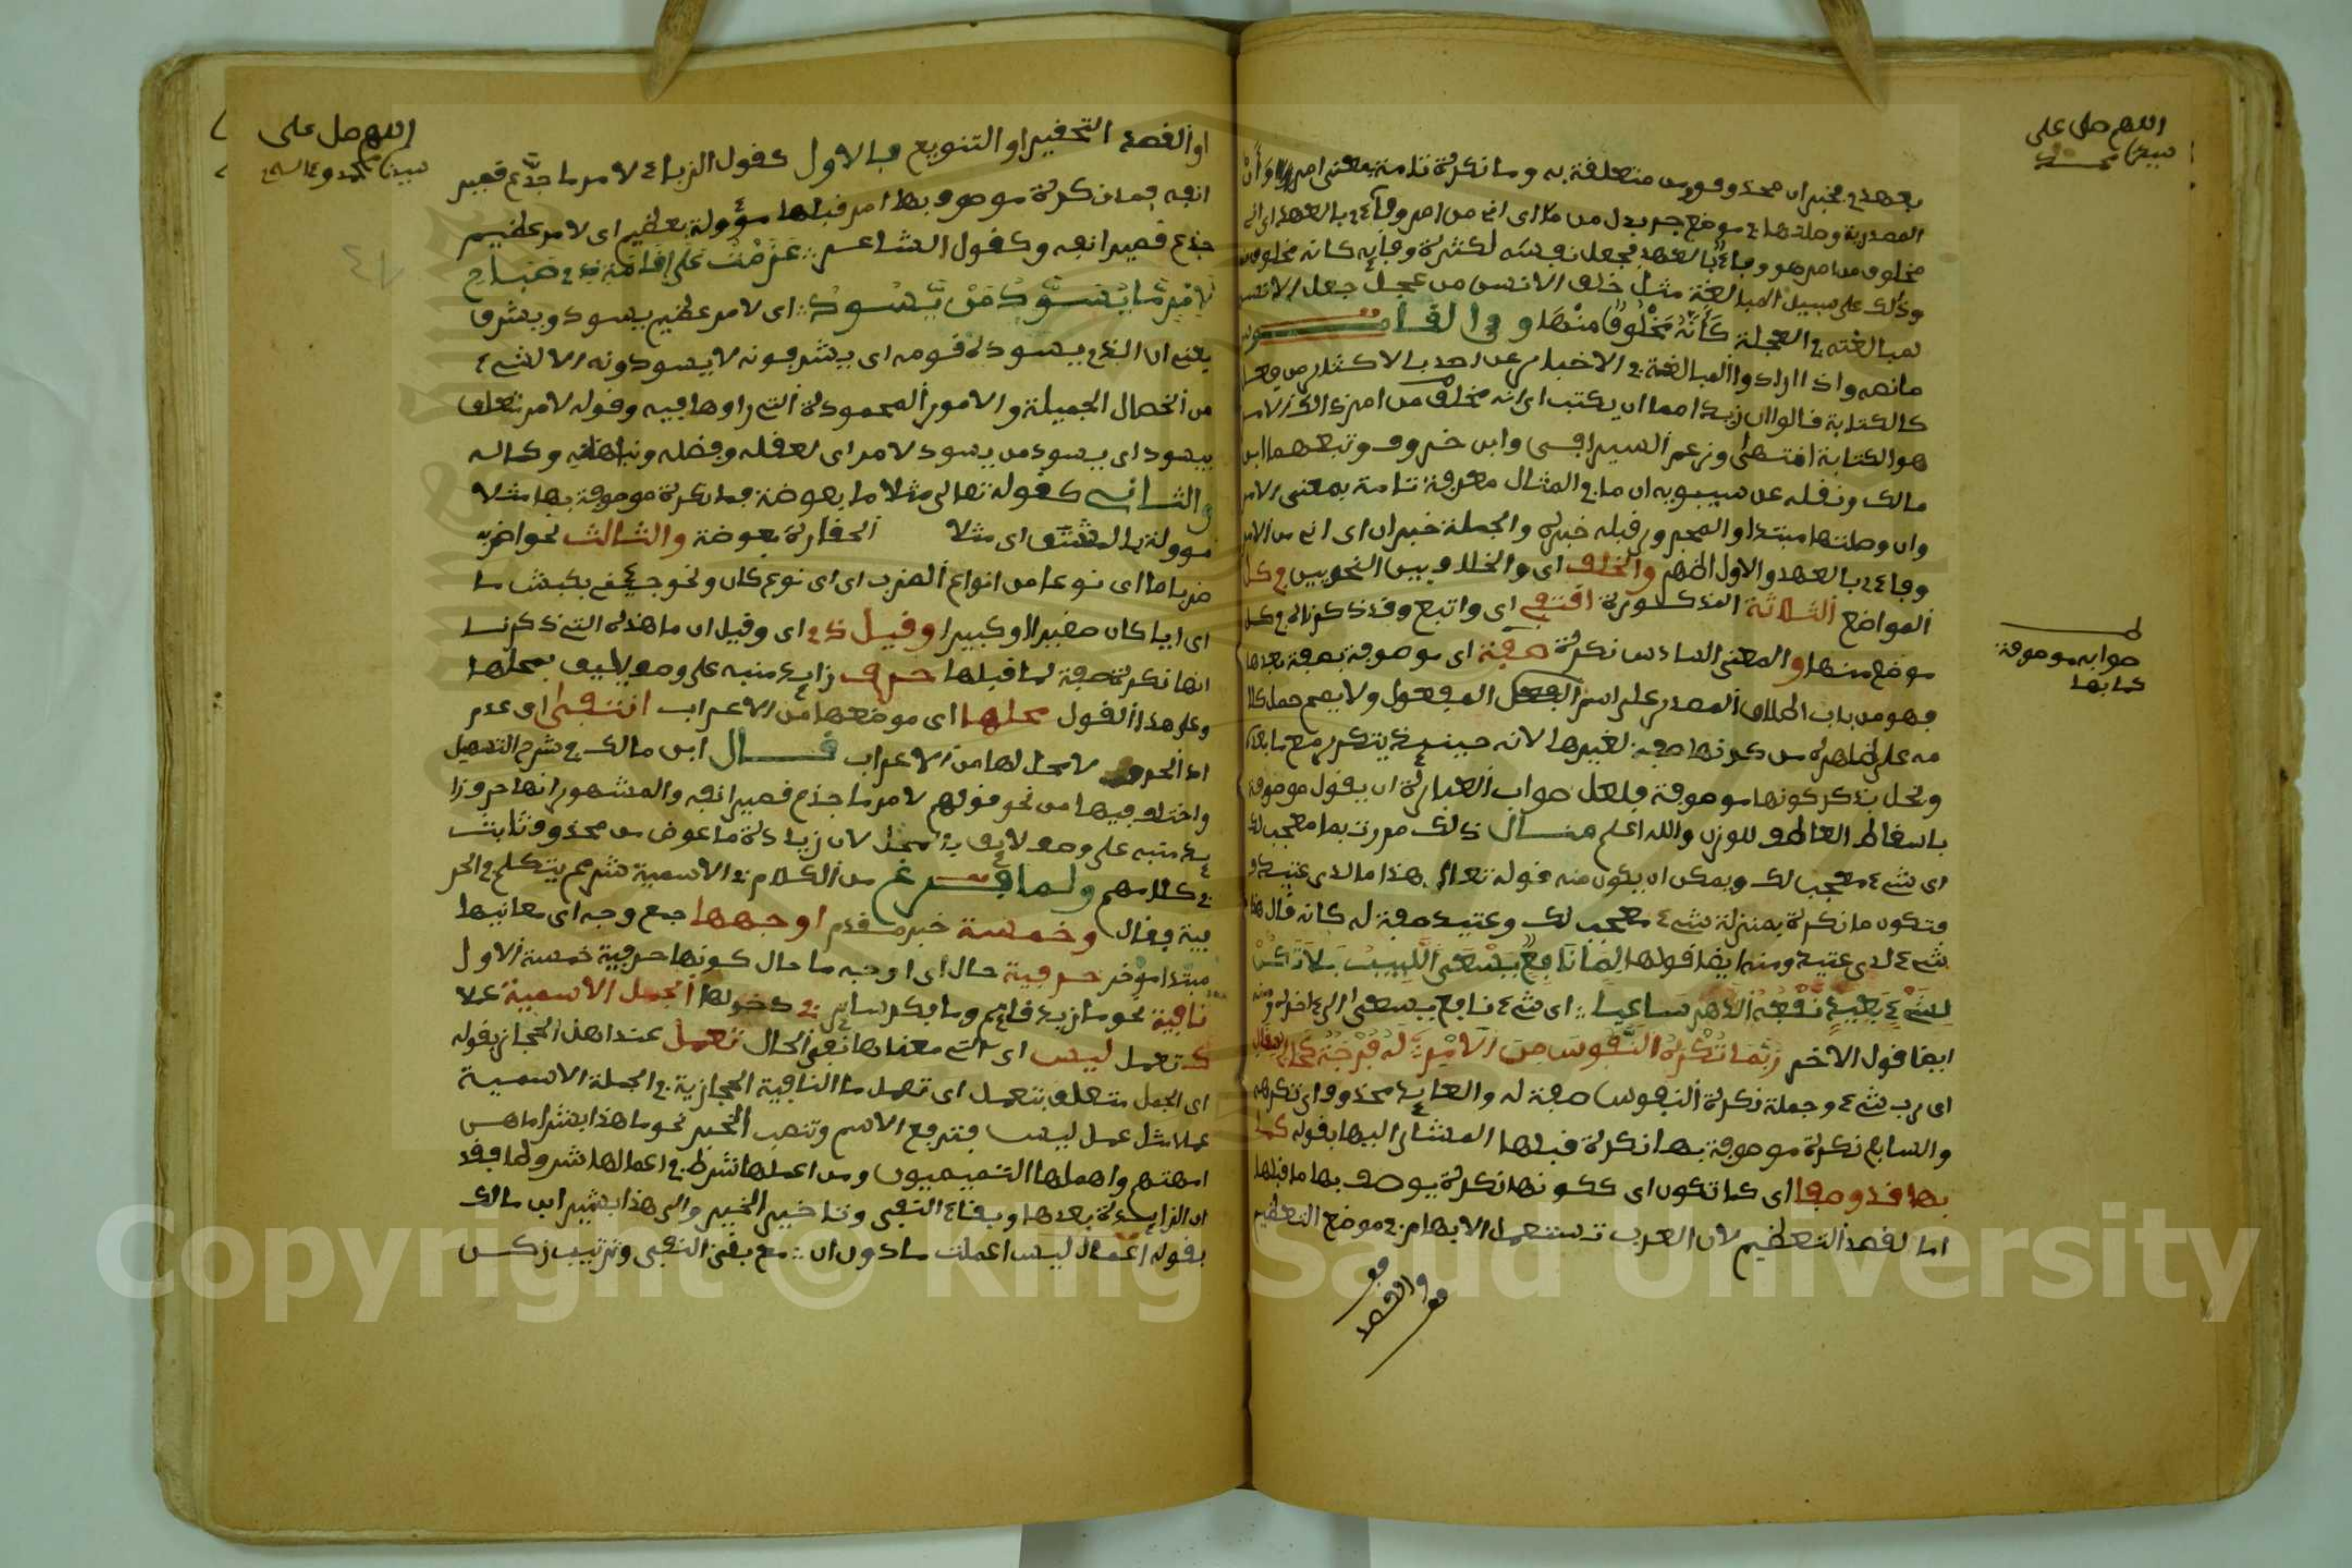 اللهم صل على
سيدنا محمد
بعهده مخبر ان محذوف ومن متعلقة به وما نكرة تامة بمعنى امر وان
المصدرية وصلتها في موضع جر بدل من ما اى انه من امر وفائه بالعهد اى انه
مخلوق من امر هو وفاءه بالعهد فجعل نفسه لكثرة وفائه كانه مخلوق منه
وذلك على سبيل المبالغة مثل خلق الانسن من عجل جعل الانسن
لمبالغته في العجلة كأنه مخلوق منها وفى القاموس
مانصه واذا ارادوا المبالغة في الاخبار عن احد بالاكثار من فعل
كالكتابة قالوا ان زيدا مما ان يكتب اى انه مخلوق من امر ذلك الامر
هو الكتابة انتهى وزعم السيرافى وابن خروف وتبعهما ابن
مالك ونقله عن سيبويه ان ما في المثال معرفة تامة بمعنى الامر
وان وصلتها مبتدا والمجرور قبله خبره والجملة خبر ان اى انه من الامر
وفاءه بالعهد والاول اظهر والخلف اى والخلاف بين النحويين في كل
المواضع الثلاثة المذكورة اقتفى اى واتبع وقد ذكرناه في كل
موضع منها والمعنى السادس نكرة صفة اى موصوفة بصفة بعدها
فهو من باب اطلاق المصدر على اسم المفعول ولا يصح حمل كلا
مه على ظاهره من كونها صفة لغيرها لانه حينئذ يتكرر مع ما بعده
ويخل بذكر كونها موصوفة فلعل صواب العبارة ان يقول موصوفة
باسقاط العاطف للوزن والله اعلم مثال ذلك مررت بما معجب لك
اى شىء معجب لك ويمكن ان يكون منه قوله تعالى هذا ما لدى عتيد
فتكون ما نكرة بمنزلة شىء معجب لك وعتيد صفة له كانه قال هذا
شىء لدى عتيد ومنه ايضا قولها لما نافع يسعى اللبيب فلا تكن
لشىء بعيد نفعه الدهر ساعيا اى شىء نافع يسعى الى اخره ومنه
ايضا قول الاخر ربما تكره النفوس من الامر له فرجة كحل العقال
اى رب شىء وجملة تكره النفوس صفة له والعايد محذوف اى تكرهه
والسابع نكرة موصوفة بها نكرة قبلها المشار اليها بقوله كما
بها قد وصفا اى كما تكون اى ككونها نكرة يوصف بها ما قبلها
اما لقصد التعظيم لان العرب تستعمل الابهام في موضع التعظيم
صوابه موصوفة
كما بها
او القصد
اللهم صل على
سيدنا محمد وءاله
او القصد التحقير او التنويع فالاول كقول الزباء لامر ما جدع قصير
انفه فما نكرة موصوف بها امر قبلها مؤولة بعظيم اى لامر عظيم
جدع قصير انفه وكقول الشاعر عزمت على اقامة ذى صباح
لامر ما يسود من يسود اى لامر عظيم يسود ويشرف
يعنى ان الذى يسوده قومه اى يشرفونه لا يسودونه الا لشىء
من الخصال الجميلة والامور المحمودة التى راوها فيه وقوله لامر متعلق
بيسود اى يسود من يسود لامر اى لعقله وفضله ونباهته وكماله
والثانى كقوله تعالى مثلا ما بعوضة فما نكرة موصوف بها مثلا
موولة بالمشتق اى مثلا الحقارة بعوضة والثالث نحو اضربه
ضربا ما اى نوعا من انواع الضرب اى اى نوع كان ونحو جئنى بكبش ما
اى ايا كان صغيرا او كبيرا وقيل ذى اى وقيل ان ما هذه التى ذكرنا
انها نكرة صفة لما قبلها حرف زايد منبه على وصف يليق بمحلها
وعلى هذا القول محلها اى موضعها من الاعراب انتفى اى عدم
اذ الحرف لا محل لها من الاعراب قال ابن مالك في شرح التسهيل
واختلف فيها من نحو قولهم لامر ما جدع قصير انفه والمشهور انها حرف زا
يد منبه على وصف لايق بالمحل لان زيادة ما عوض من محذوف ثابت
في كلامهم ولما فرغ من الكلام في الاسمية شرع يتكلم في الحر
فية فقال وخمسة خبر مقدم اوجهها جمع وجه اى معانيها
مبتدا موخر حرفية حال اى اوجه ما حال كونها حرفية خمسة الاول
نافية نحو ما زيد قائم وما بكر ساير في دخولها الجمل الاسمية عملا
كـ تعمل ليس اى التى معناها نفى الحال تعمل عند اهل الحجاز بقوله
اى الجمل متعلق بتعمل اى تعمل ما النافية الحجازية في الجملة الاسمية
عملا مثل عمل ليس فترفع الاسم وتنصب الخبر نحو ما هذا بشرا ما هن
امهتهم واهملها التميميون ومن اعملها شرط في اعمالها شروطا فقد
ان الزايدة بعدها وبقاء النفى وتاخير الخبر والى هذا يشير ابن مالك
بقوله اعمال ليس اعملت ما دون ان مع بقى النفى وترتيب زكن